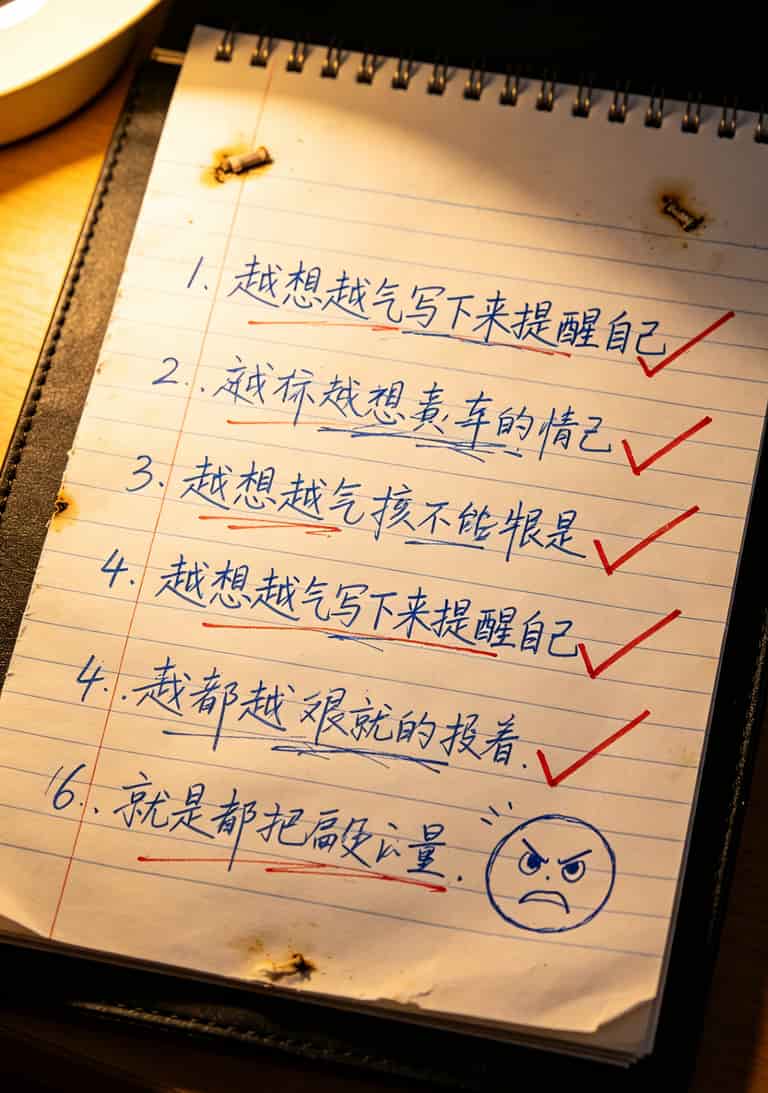 1. 越想越气写下来提醒自己
2.. 越标越想责车的情己
3. 越想越气核不能恨是
4. 越想越气写下来提醒自己
4.. 越都越艰就的投着.
16.. 就是都把量.